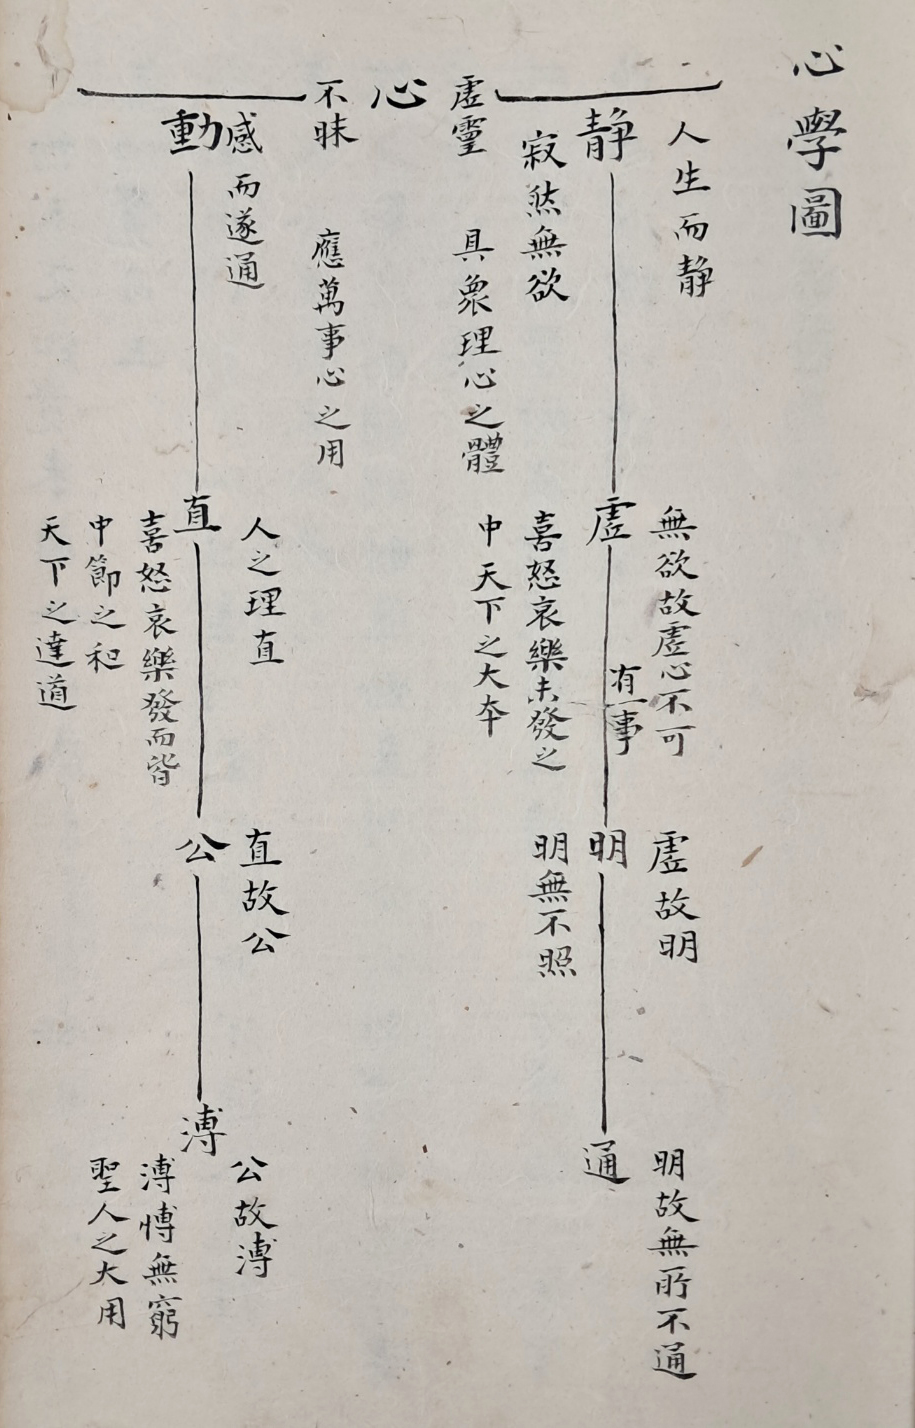 心學圖
人生而靜
靜
寂然無欲
無欲故虛心不可
有一事
虛
喜怒哀樂未發之
中天下之大本
虛故明
明
明無不照
明故無所不通
通
虛靈
具衆理心之體
心
不昧
應萬事心之用
感而遂通
動
人之理直
直
喜怒哀樂發而皆
中節之和
天下之達道
直故公
公
公故溥
溥
溥博無窮
聖人之大用